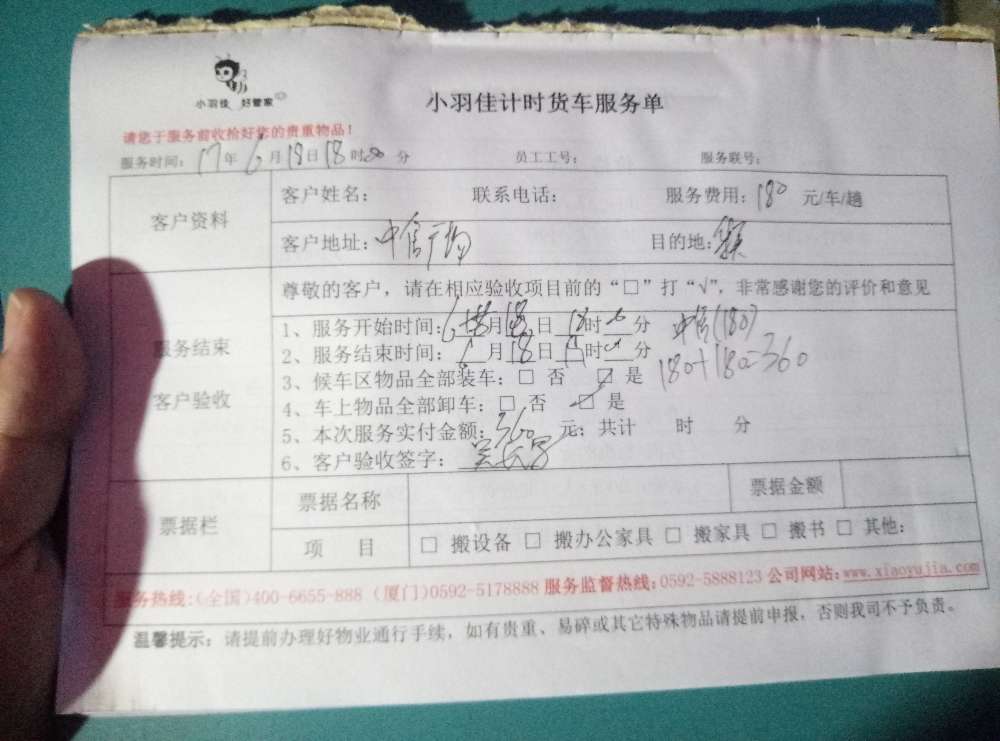 小羽佳 好管家
小羽佳计时货车服务单
请您于服务前收拾好您的贵重物品!
服务时间: 17年6月18日18时00分 员工工号: 服务联号:
客户资料
客户姓名: 联系电话: 服务费用:180 元/车/趟
客户地址: 目的地:
服务结束
客户验收
尊敬的客户,请在相应验收项目前的“□”打“√”,非常感谢您的评价和意见
1、服务开始时间:6月18日18时分 (180)
2、服务结束时间:月18日时分 180+180=360
3、候车区物品全部装车:□ 否 ☑ 是
4、车上物品全部卸车:□ 否 ☑ 是
5、本次服务实付金额:360 元; 共计 时 分
6、客户验收签字:
票据栏
票据名称 票据金额
项 目 □ 搬设备 □ 搬办公家具 □ 搬家具 □ 搬书 □ 其他:
服务热线:(全国)400-6655-888 (厦门)0592-5178888 服务监督热线:0592-5888123 公司网站:www.xiaoyujia.com
温馨提示:请提前办理好物业通行手续,如有贵重、易碎或其它特殊物品请提前申报,否则我司不予负责。